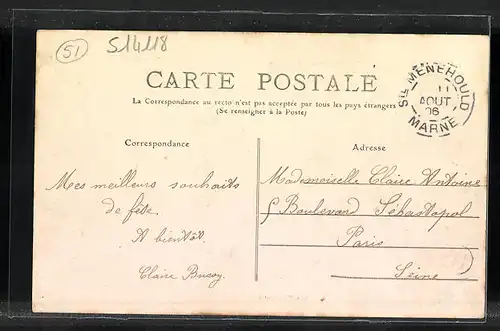 51
S14118
CARTE POSTALE
La Correspondance au recto n'est pas acceptée par tous les pays étrangers
(Se renseigner à la Poste)
STE MENEHOULD
11
AOUT
06
MARNE
Correspondance
Mes meilleurs souhaits
de fête.
A bientôt.
Claire
Adresse
Mademoiselle Claire Antoine
Boulevard Sébastopol
Paris
Seine